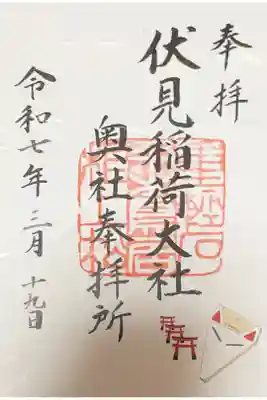 奉拝
伏見稲荷大社
奥社奉拝所
令和七年三月十九日